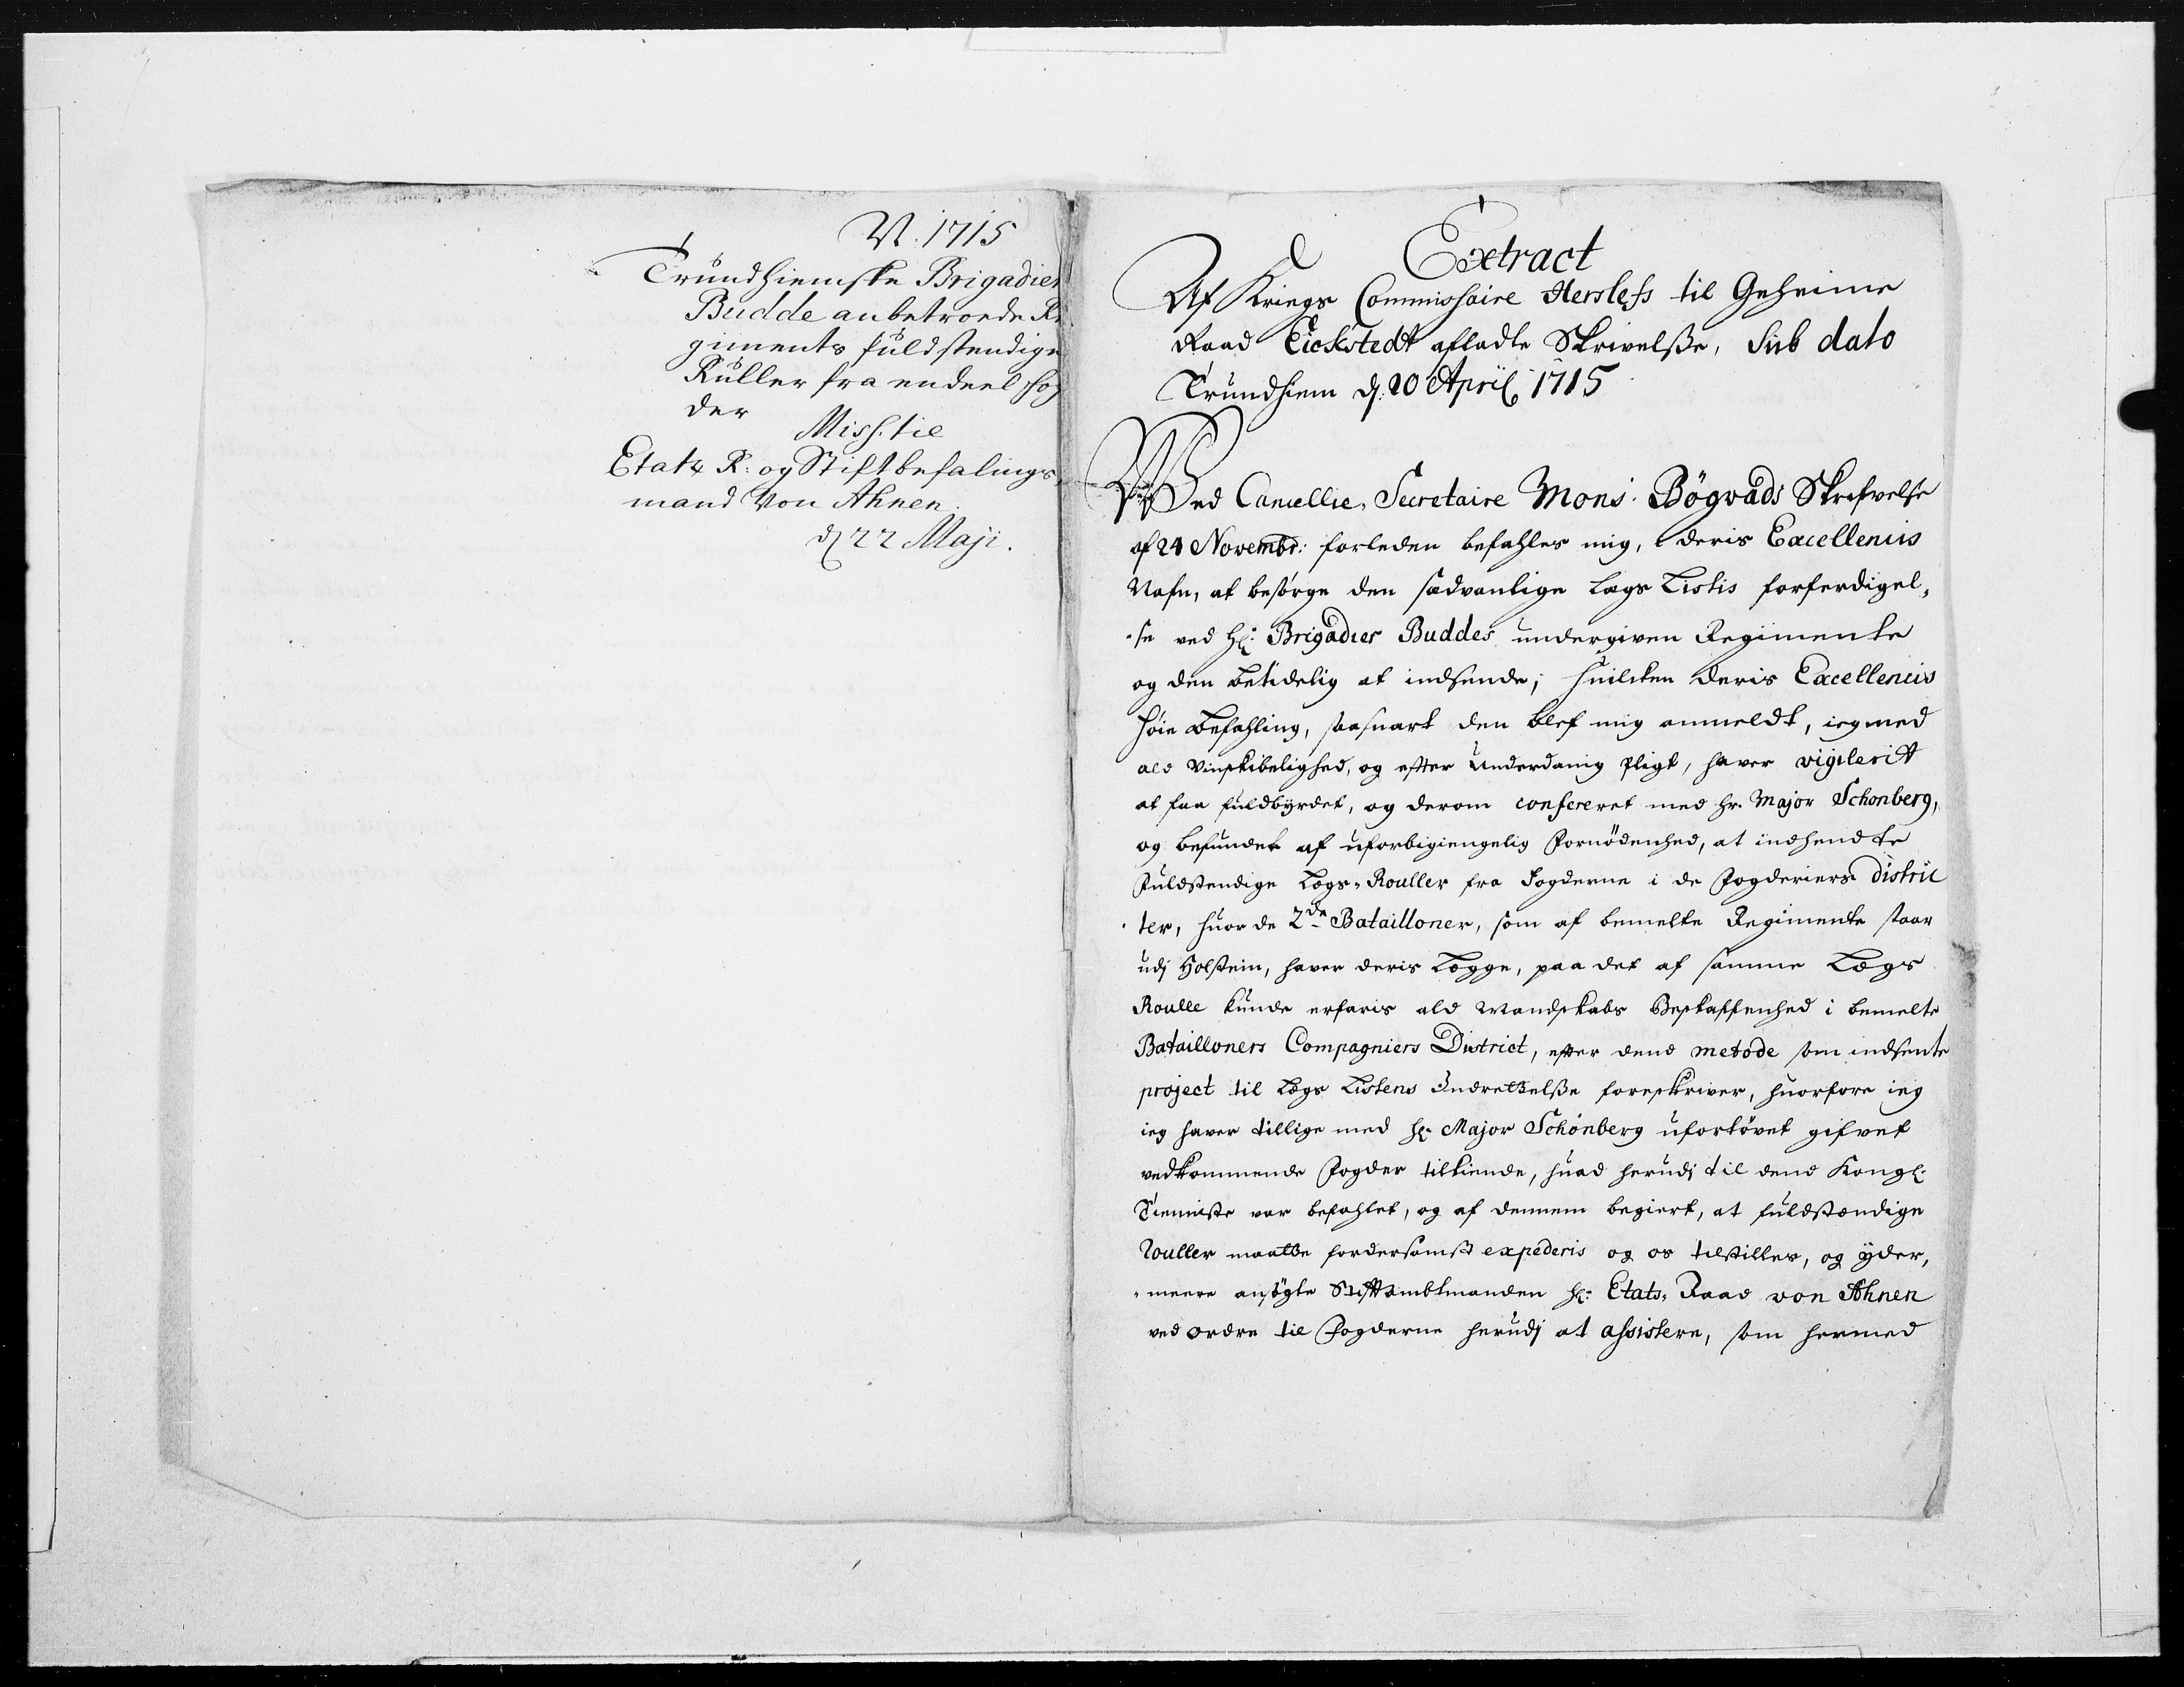 N. 1715
Trundhiemske Brigadier
Budde anbetroede Re
giments fuldstendige
Ruller fra endeel fog
der
Miss. til
Etats R: og Stiftbefalings
mand Von Ahnen.
d 22 Maji.
Extract
Af Kriegs Commissaire Herslefs til Geheime
Raad Eickstedt afladte Skrivelsse, Sub dato
Trundhiem d: 20 April 1715
Ved Cancellie-Secretaire Mons. Bögvads Skrifvelse
af 24 Novembr: forleden befahles mig, i deris Excellencis
Nafn, at besørge den sædvanlige Lægs Listis forferdigel-
-se ved Hr: Brigadier Buddes undergiven Regimente
og den betidelig at indsende; huilcken deris Excellencis
høie Befahling, saasnart den blef mig anmeldt, ieg med
ald Vinskibelighed, og efter underdanig Pligt, haver vigilerit
at faa fuldbyrdet, og derom confereret med Hr. Major Schonberg,
og befundet af uforbigiengelig Fornödenhed, at indhendte
Fuldstendige Lægs-Rouller fra Fogderne i de Fogderiers distric
ter, huor de 2de Batailloner, som af bemelte Regimente staar
udj Holstein, haver deris Lægge, paa det af samme Lægs
Roulle kunde erfaris ald Mandskabs Beskaffenhed i bemelte
Batailloners Compagniers District, efter dend metode som indsente
project til Lægs Listens Indrettelsse foreskriver, huorfore ieg
ieg haver tillige med Hr. Major Schönberg ufortövet gifvet
vedkommende Fogder tilkiende, huad herudj til dend Kongl.
Tienniste var befahlet, og af dennem begiert, at fuldstændige
Rouller maatte fordersomst expederis og os tilstilles, og ÿder-
-meere ansögte Stiftambtmanden Hr: Etats-Raad von Ahnen
ved ordre til Fogderne herudj at assistere, som hermed